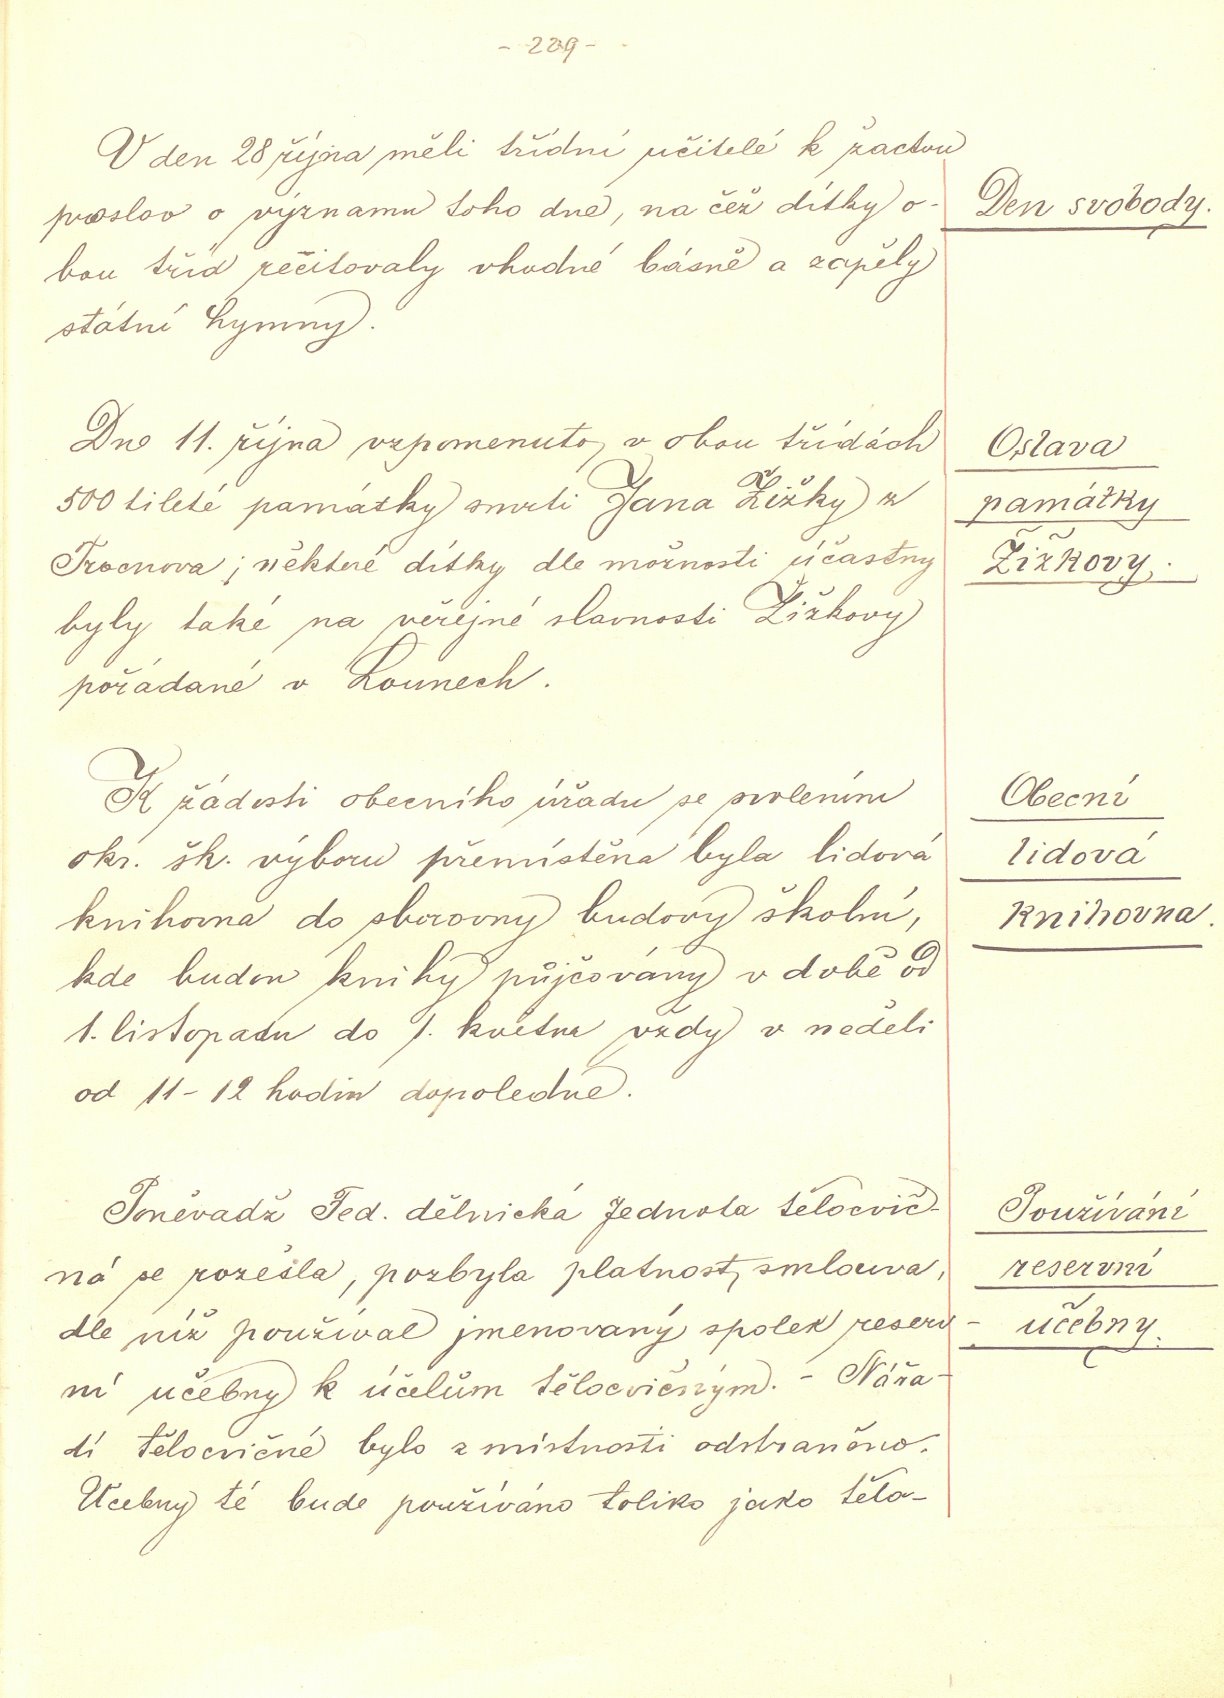 - 229 -
V den 28 října měli třídní učitelé k žactvu
proslov o významu toho dne, na čež dítky o-
bou tříd rečitovaly vhodné básně a zapěly
státní hymny.
Den svobody.
Dne 11. října vzpomenuto v obou třídách
500 tileté památky smrti Jana Žižky z
Trocnova; některé dítky dle možnosti účastny
byly také na veřejné slavnosti Žižkovy
pořádané v Lounech.
Oslava
památky
Žižkovy.
K žádosti obecního úřadu se svolením
okr. šk. výboru přemístěna byla lidová
knihovna do sborovny budovy školní,
kde budou knihy půjčovány v době od
1. listopadu do 1. května vždy v neděli
od 11-12 hodin dopoledne.
Obecní
lidová
knihovna.
Poněvadž Fed. dělnická Jednota tělocvič-
ná se rozešla, pozbyla platnost smlouva,
dle níž používal jmenovaný spolek reserv-
ní učebny k účelům tělocvičným. - Nářa-
dí tělocvičné bylo z místnosti odstraněno.
Učebny té bude používáno toliko jako tělo-
Používání
reservní
učebny.